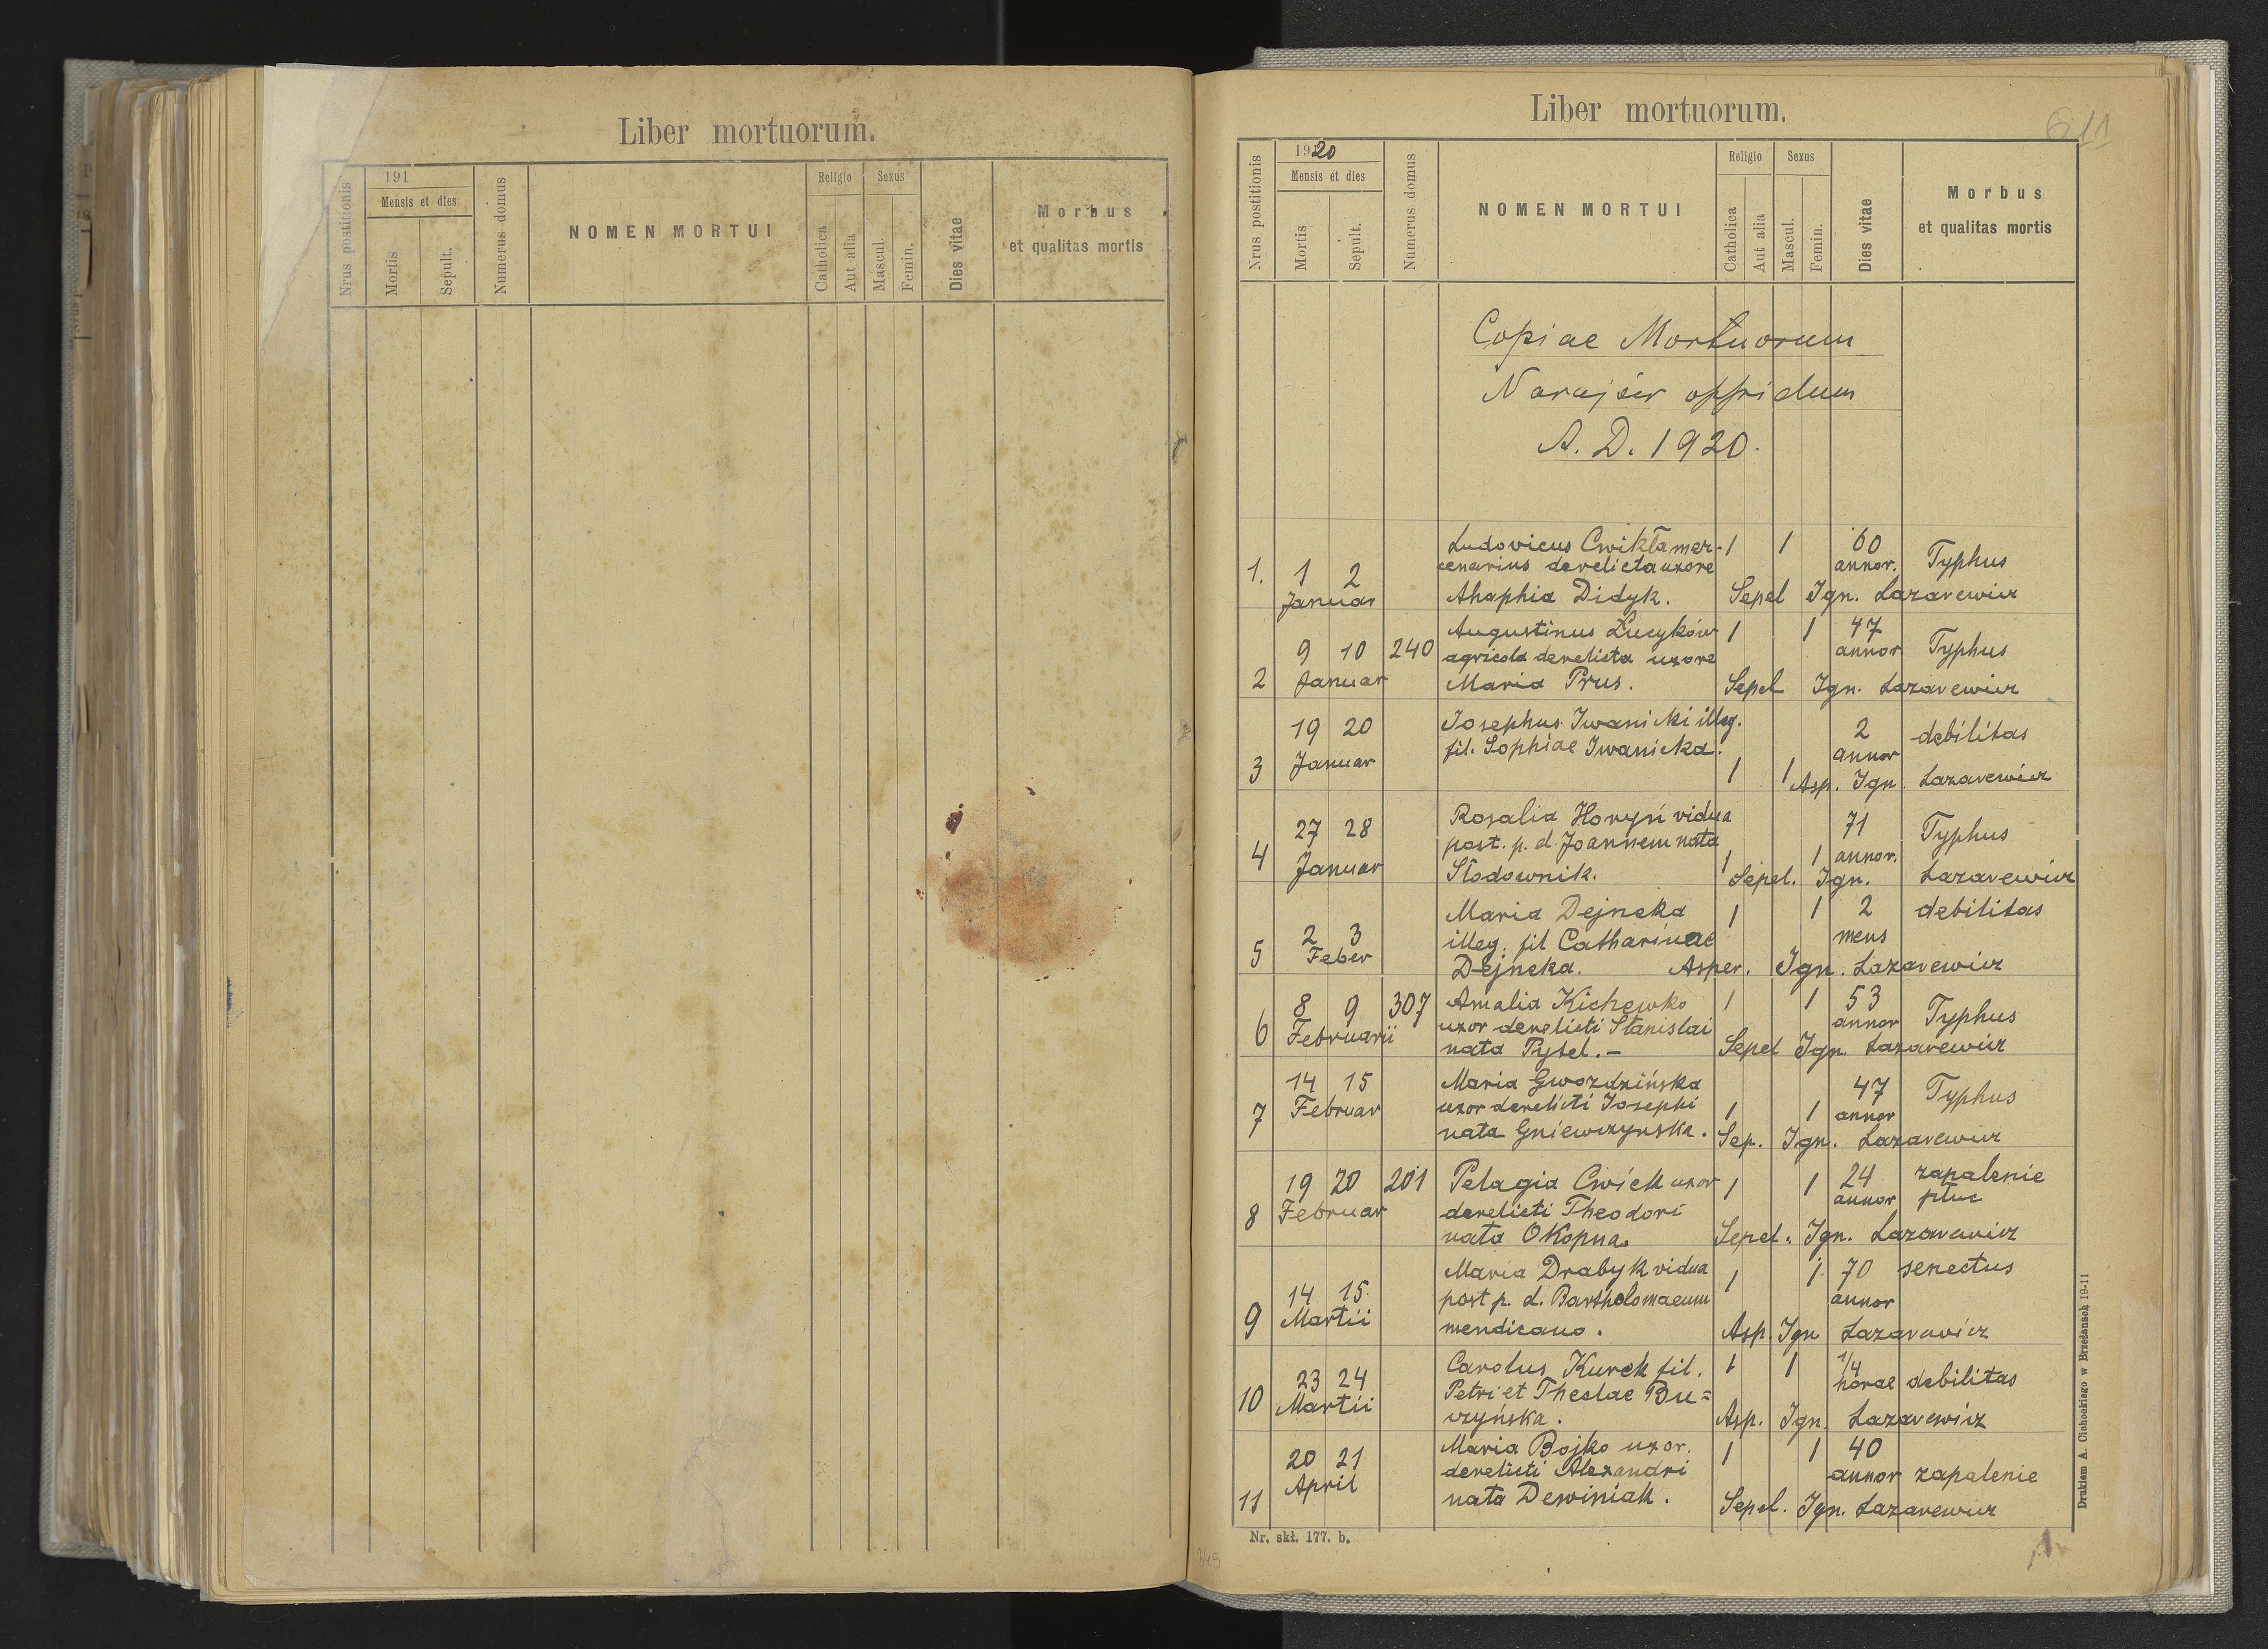 Liber mortuorum.
Nrus postitionis
191
Mensis et dies
Mortis
Sepult.
Numerus domus
NOMEN MORTUI
Religio
Catholica
Aut alia
Sexus
Mascul.
Femin.
Dies vitae
Morbus
et qualitas mortis
Liber mortuorum.
611
Nrus postitionis
1920
Mensis et dies
Mortis
Sepult.
Numerus domus
NOMEN MORTUI
Religio
Catholica
Aut alia
Sexus
Mascul.
Femin.
Dies vitae
Morbus
et qualitas mortis
Copiae Mortuorum
Narajów oppidum
A. D. 1920.
Ludovicus Cwikła mer- 1 1 60
1. 1 2 cenarius derelicta uxore annor. Typhus
Januar Ahaphia Didyk. Sepel Ign. Lazarewicz
Augustinus Lucyków 1 1 47
9 10 240 agricola derelicta uxore annor Typhus
2 Januar Maria Prus. Sepel Ign. Lazarewicz
19 20 Josephus Iwanicki illeg. 2 debilitas
fil. Sophiae Iwanicka. annor
3 Januar 1 1 Asp. Ign. Lazarewicz
27 28 Rosalia Horyń vidua 71 Typhus
post. p. d. Joannem nata 1 1 annor.
4 Januar Słodownik. Sepel. Ign. Lazarewicz
Maria Dejneka 1 1 2 debilitas
2 3 illeg. fil Catharinae mens
5 Feber Dejneka. Asper. Ign. Lazarewicz
8 9 307 Amalia Kichewko 1 1 53
6 Februarii uxor derelicti Stanislai annor Typhus
nata Pysel.- Sepel Ign. Lazarewicz
14 15 Maria Gwozdzińska 47 Typhus
7 Februar uxor derelicti Josephi 1 1 annor
nata Gniewczynska. Sep. Ign. Lazarewicz
19 20 201 Pelagia Cwiek uxor 1 1 24 zapalenie
8 Februar derelicti Theodori annor płuc
nata Okopna. Sepel. Ign. Lazarewicz
Maria Drabyk vidua 1 1 70 senectus
14 15 post p. d. Bartholomaeum annor
9 Martii mendicans. Asp. Ign Lazarewicz
Carolus Kurek fil. 1 1 1/4
23 24 Petri et Theclae Bu= horae debilitas
10 Martii czyńska. Asp. Ign. Lazarewicz
Maria Bojko uxor. 1 1 40
20 21 derelicti Alexandri annor zapalenie
11 April nata Dewiniak. Sepel. Ign. Lazarewicz
Nr. skł. 177. b.
Drukiem A. Cichockiego w Brzeżanach 19-11
349